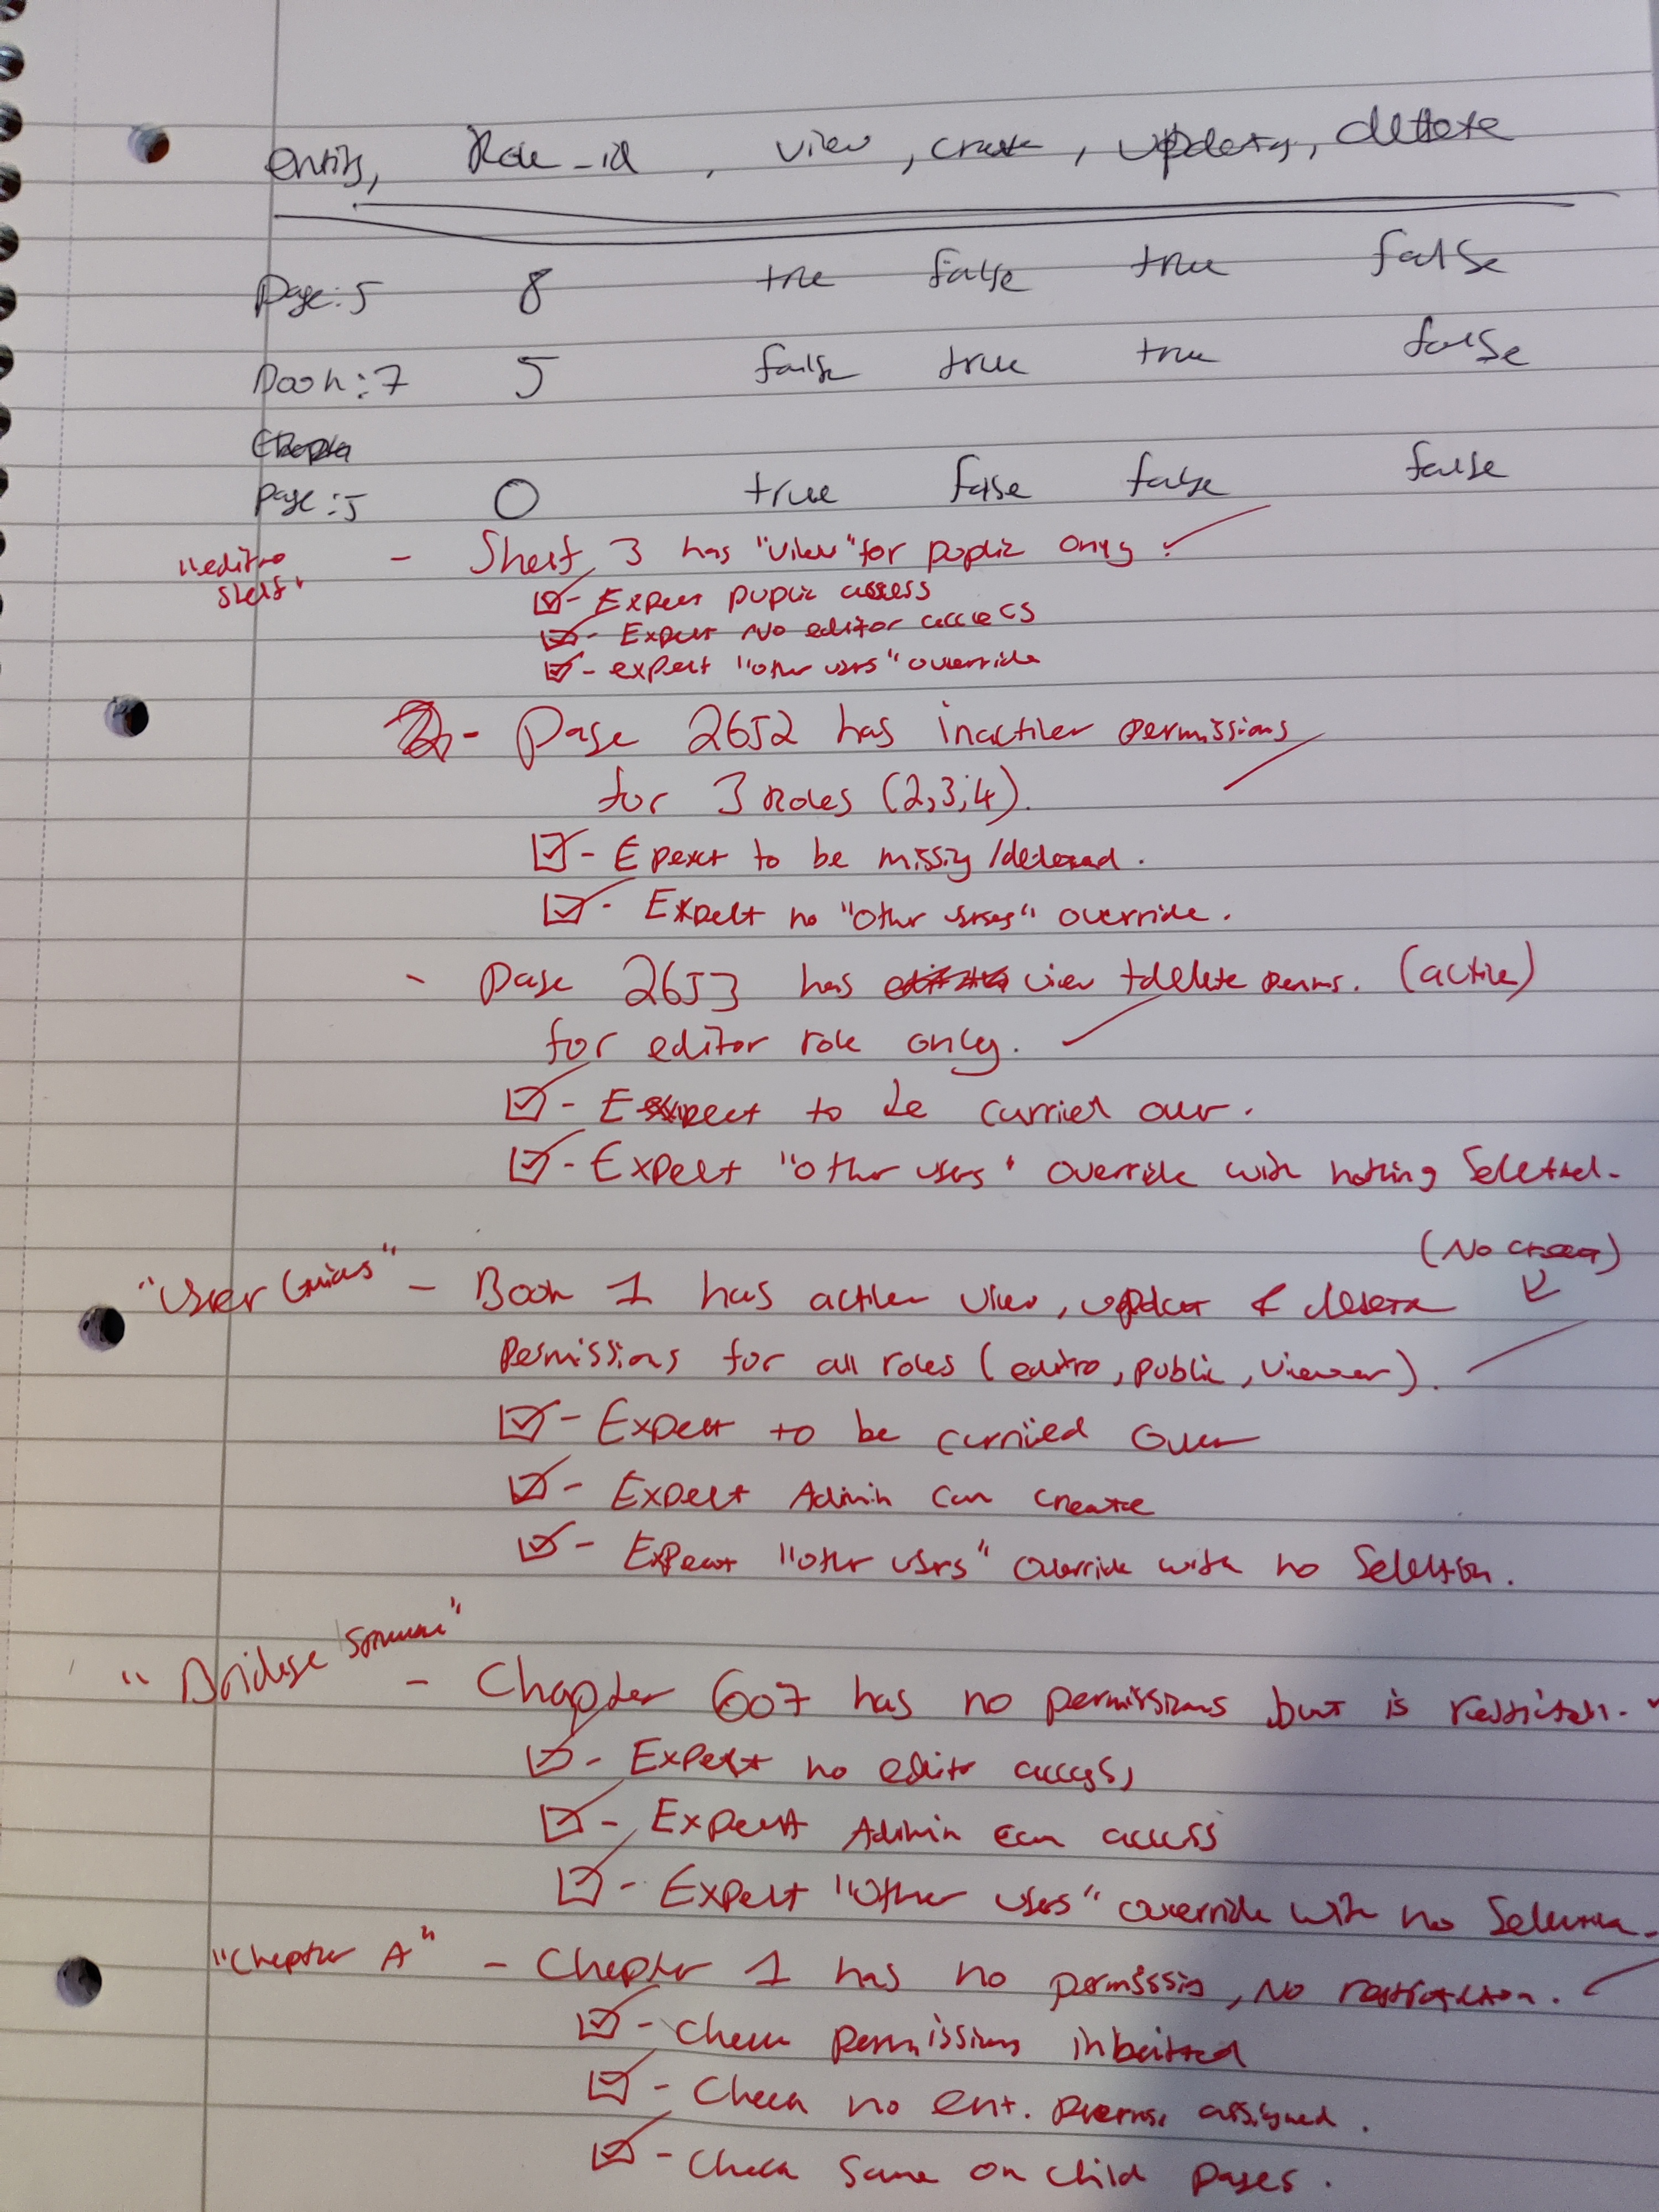 entity, Role_id, view, create, update, delete
page:5 8 true false true false
Book:7 5 false true true false
Chapter
page:5 0 true false false false
"editro shelf" - Shelf 3 has "view" for public only
- Expect public access
- Expect No editor access
- expect "other users" override
- Page 2652 has inactive permissions
for 3 Roles (2,3,4).
- Epexct to be missing/deleted.
- Expect no "other users" override.
- Page 2653 has view + delete perms. (active)
for editor role only.
- Expect to be carried over.
- Expect "other users" override with nothing selected.
(No create)
"User Guides" - Book 1 has active view, update & delete
permissions for all roles (editro, public, viewer).
- Expect to be carried over
- Expect Admin can create
- Expect "other users" override with no selection.
"Bridge" - Chapter 607 has no permissions but is restricted.
- Expect no editor access,
- Expect Admin can access
- Expect "Other users" override with no selection.
"Chapter A" - Chapter 1 has no permissis, No restriction.
- Check permissions inherited
- Check no ent. perms. assigned.
- Check same on child pages.